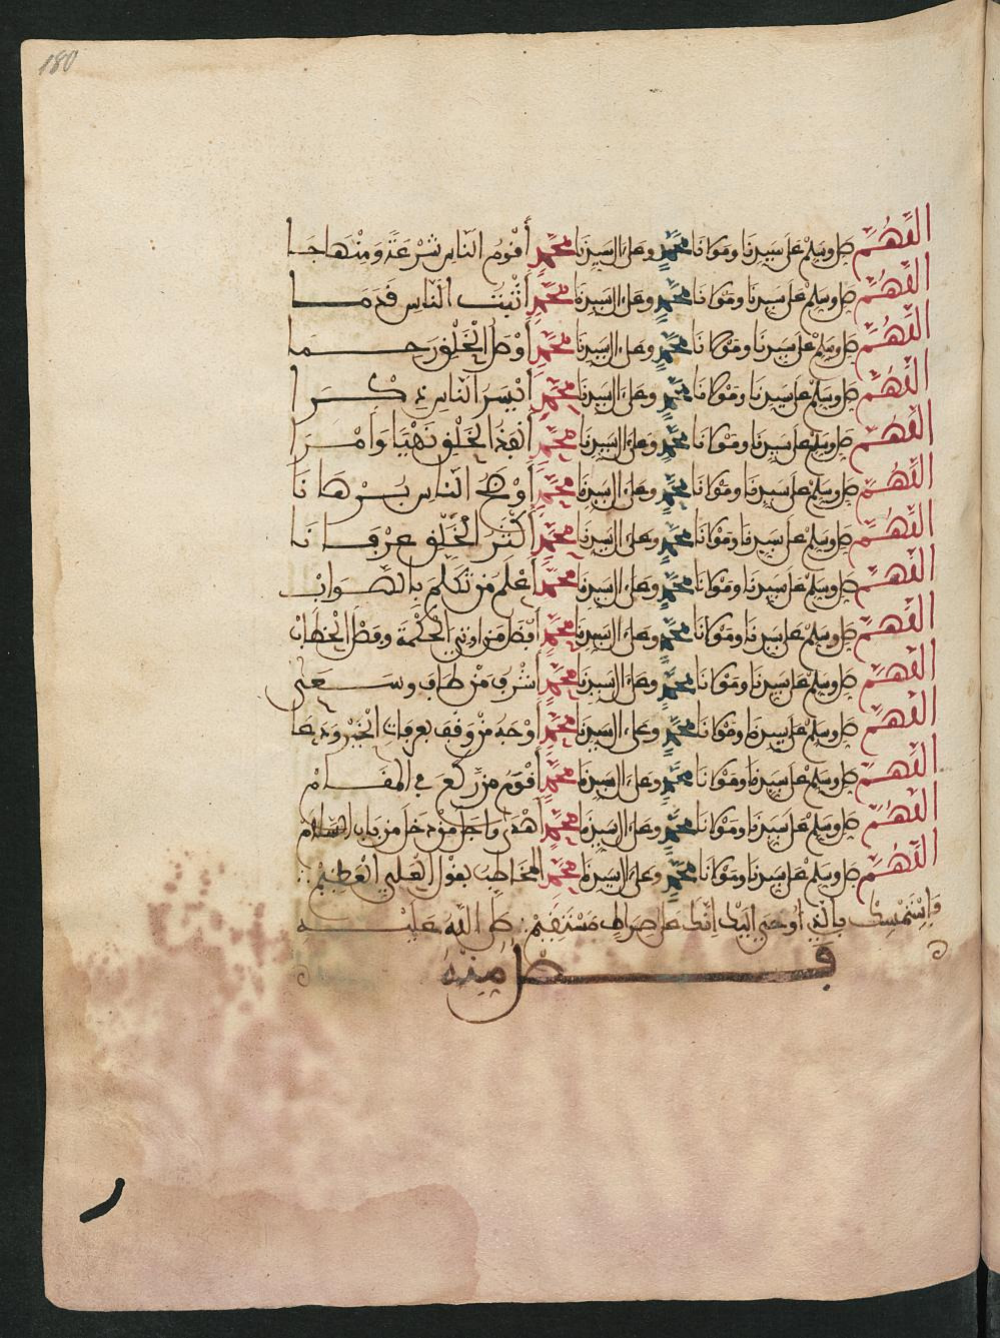 180
اللهم صل وسلم على سيدنا ومولانا محمد وعلى ءال سيدنا محمد أقوم الناس شرعة ومنهاجا
اللهم صل وسلم على سيدنا ومولانا محمد وعلى ءال سيدنا محمد أثبت الناس قدما
اللهم صل وسلم على سيدنا ومولانا محمد وعلى ءال سيدنا محمد أوصل الخلق رحما
اللهم صل وسلم على سيدنا ومولانا محمد وعلى ءال سيدنا محمد أيسر الناس ذكرا
اللهم صل وسلم على سيدنا ومولانا محمد وعلى ءال سيدنا محمد أنفذ الخلق نهيا وأمرا
اللهم صل وسلم على سيدنا ومولانا محمد وعلى ءال سيدنا محمد أوضح الناس برهانا
اللهم صل وسلم على سيدنا ومولانا محمد وعلى ءال سيدنا محمد أكثر الخلق عرفانا
اللهم صل وسلم على سيدنا ومولانا محمد وعلى ءال سيدنا محمد أعلم من تكلم بالصواب
اللهم صل وسلم على سيدنا ومولانا محمد وعلى ءال سيدنا محمد أفضل من اوتي الحكمة وفصل الخطاب
اللهم صل وسلم على سيدنا ومولانا محمد وعلى ءال سيدنا محمد أشرف من طاف وسعى
اللهم صل وسلم على سيدنا ومولانا محمد وعلى ءال سيدنا محمد أوحد من وقف بعرفات الخير ودعا
اللهم صل وسلم على سيدنا ومولانا محمد وعلى ءال سيدنا محمد أقوم من ركع في المقام
اللهم صل وسلم على سيدنا ومولانا محمد وعلى ءال سيدنا محمد أهدى وأجل من دخل من باب السلام
اللهم صل وسلم على سيدنا ومولانا محمد وعلى ءال سيدنا محمد المخاطب بقول العلي العظيم
فاستمسك بالذي أوحي إليك إنك على صراط مستقيم صلى الله عليه
فصل منه